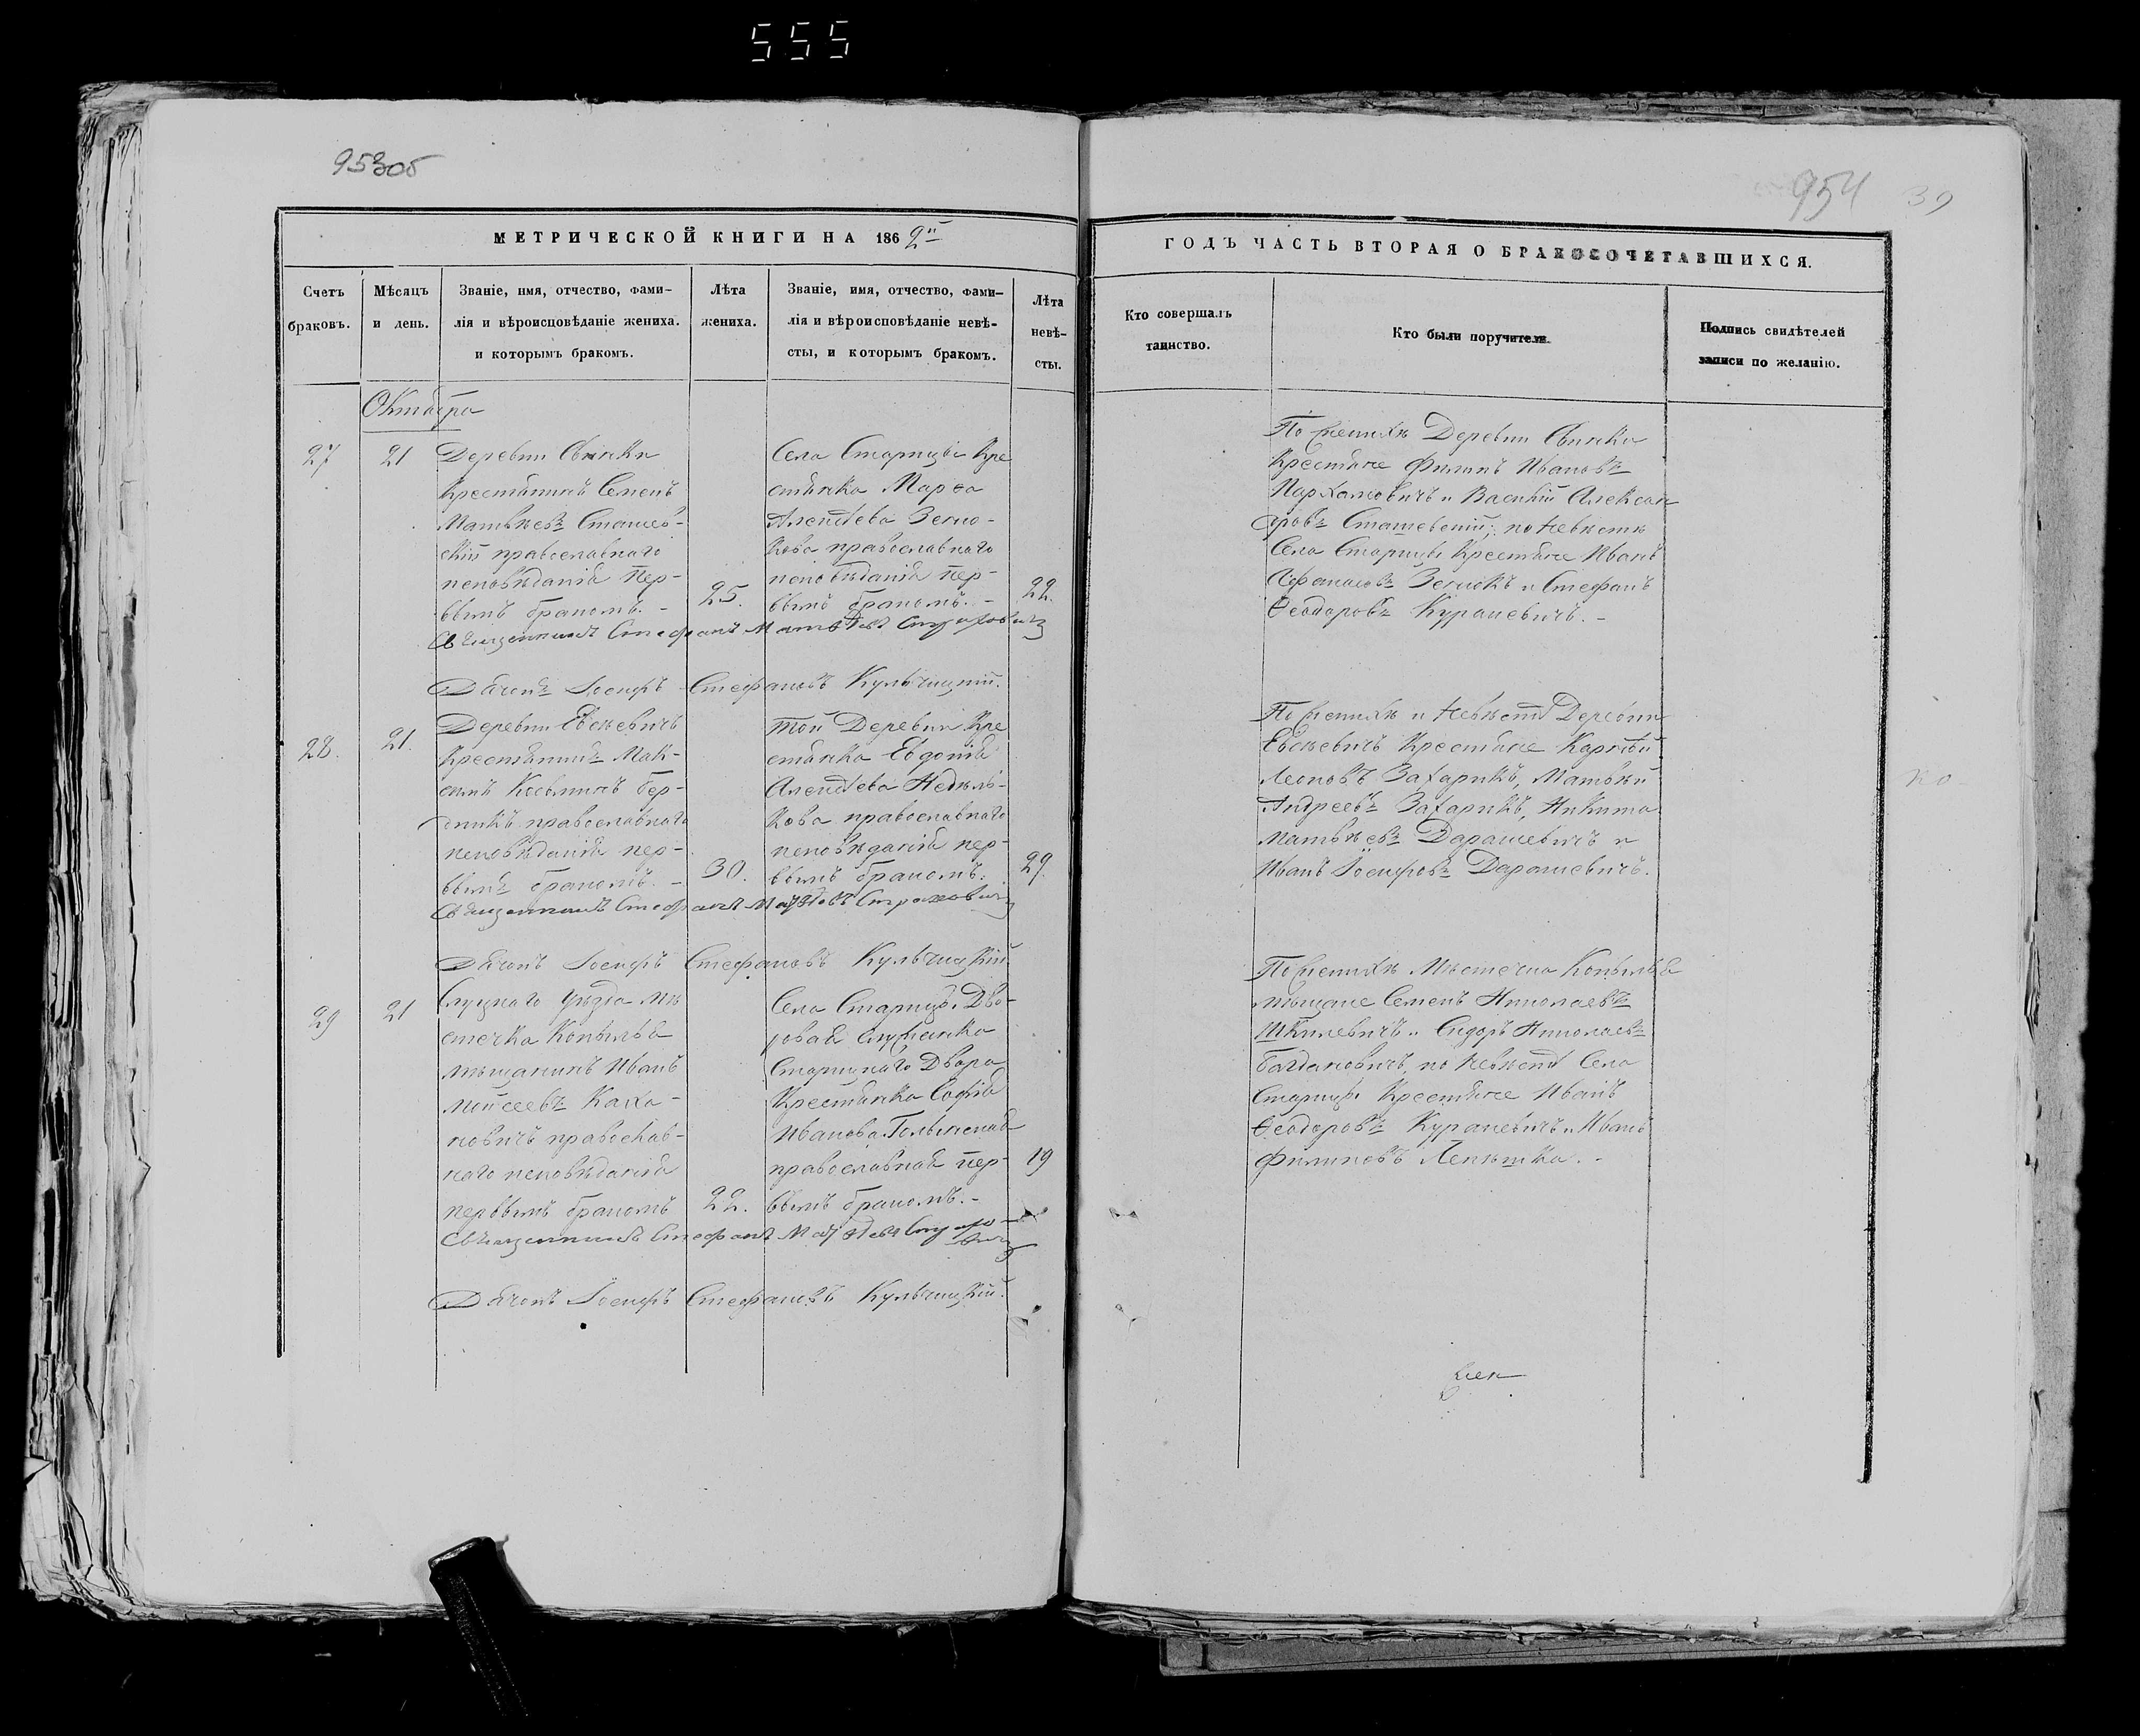 555
953об
954
39
МЕТРИЧЕСКОЙ КНИГИ НА 1862й
ГОДЪ ЧАСТЬ ВТОРАЯ О БРАКОСОЧЕТАВШИХСЯ.
Счетъ
браковъ.
Мѣсяцъ
и день.
Званіе, имя, отчество, фами-
лія и вѣроисповѣданіе жениха.
и которымъ бракомъ.
Лѣта
жениха.
Званіе, имя, отчество, фами-
лія и вѣроисповѣданіе невѣ-
сты, и которымъ бракомъ.
Лѣта
невѣ-
сты.
Кто совершалъ
таинство.
Кто были поручители.
Подпись свидѣтелей
записи по желанію.
Октября
27
21
Деревни Свинки
Крестьянинъ Семенъ
Матвѣевъ Сташев-
скій православнаго
исповѣданія пер-
вымъ бракомъ. -
25.
Села Старицы Кре
стьянка Марѳа
Алексѣева
кова православнаго
исповѣданія пер-
вымъ бракомъ. -
22.
Священникъ Стефанъ Матвѣевъ Страховичъ
Дьячокъ Іосифъ Стефановъ Кульчицкій.
По женихѣ Деревни Свинки
Крестьяне Филипъ Ивановъ
Пархамовичъ и Василій Алексан
дровъ Сташевскій; по невѣстѣ
Села Старицы Крестьяне Иванъ
Афанасовъ и Стефанъ
Ѳеодоровъ Курапевичъ. -
28.
21.
Деревни Евсѣевичъ
Крестьянинъ Мак-
симъ
православнаго
исповѣданія пер-
вымъ бракомъ. -
30.
той Деревни Кре
стьянка Евдокія
Алексѣева Недѣль-
кова православнаго
исповѣданія пер-
вымъ бракомъ.
29.
Священникъ Стефанъ Матвѣевъ Страховичъ
Дьячокъ Іосифъ Стефановъ Кульчицкій
По женихѣ и невѣстѣ Деревни
Евсѣевичъ Крестьяне
Леоновъ Захарикъ, Матвѣй
Андреевъ Захарикъ, Никита
Матвѣевъ Дарашевичъ и
Иванъ Іосифовъ Дарашевичъ.
29
21
Слуцкаго уѣзда мѣ
стечка Копыля
мѣщанинъ Иванъ
Мойсеевъ Каха-
новичъ православ-
наго исповѣданія
первымъ бракомъ
22.
Села Старицы Дво-
ровая служанка
Старицкаго Двора
Крестьянка Софія
Иванова
православная пер-
вымъ бракомъ. -
19
Священникъ Стефанъ Матвѣевъ Страхо-
вичъ
Дьячокъ Іосифъ Стефановъ Кульчицкій.
По женихѣ Мѣстечка Копыля
мѣщане Семенъ Николаевъ
Шкилевичъ и Сидоръ Николаевъ
Богдановичъ, по невѣстѣ Села
Старицы Крестьяне Иванъ
Ѳеодоровъ Курапевичъ и Иванъ
Филиповъ Лепѣшка. -